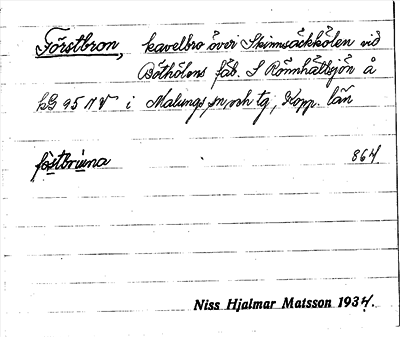 Förstbron, kavelbro över Skinnsäckkölen vid
Bötkölens fäb. S Rönnhåltsjön å
kG 95 N V i Malungs sn och tg, Kopp. län
föstbruna 864
Niss Hjalmar Matsson 1934.